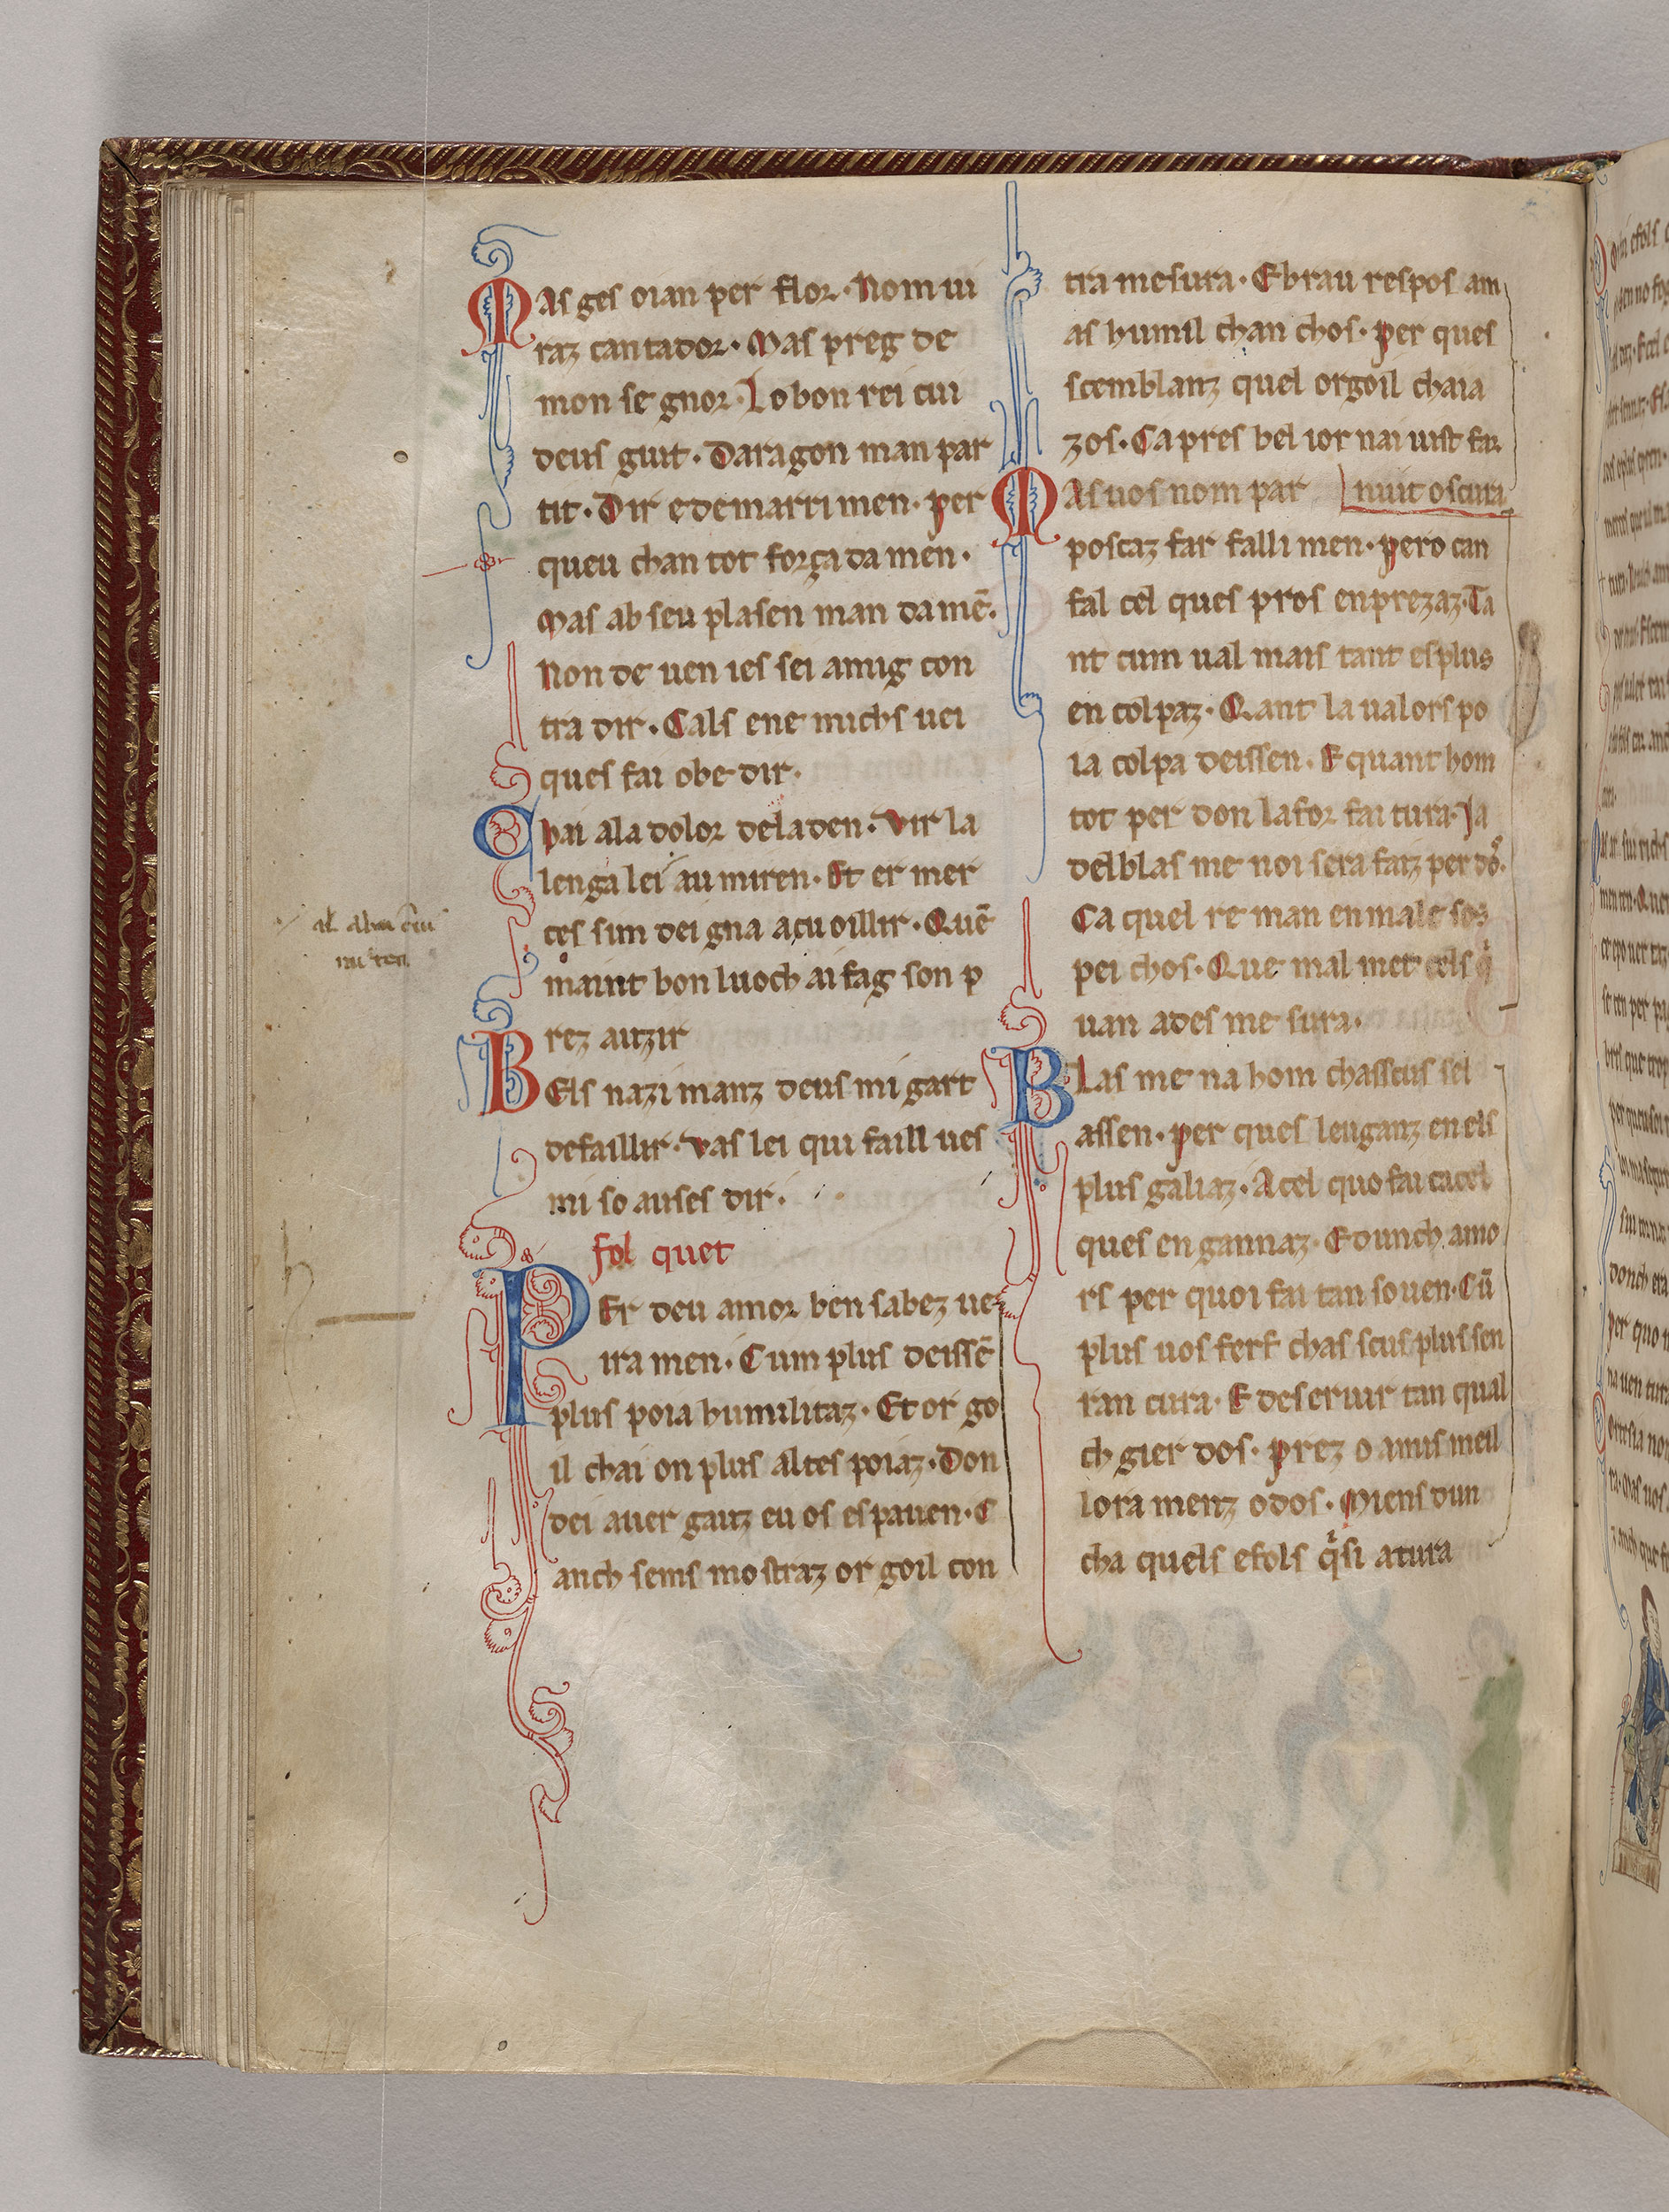 Mas ges oian per flor. Nom ui
raz cantador. Mas preg de
mon se gnor. Lo bon rei cui
deus guit. Daragon man par
tit. Dir e de marri men. per
queu chan tot forza da men.
Mas ab seu plasen man da mē.
Non de uen ies sei amig con
tra dir. Cals ene michs uei
ques fai obe dir.
Chai ala dolor dela den. Vir la
lenga lei au miren. Et er mer
ces sim dei gna acu oillir. Quē
maint bon luoch ai fag son p
rez auzir
Bels nazi manz deus mi gart
defaillir. Vas lei qui faill ues
mi so auses dir.
fol quet
PEr deu amor ben sabez ue
ira men. Cum plus deissē
plus poia humilitaz. Et or go
il chai on plus altes poiaz. Don
dei auer gauz eu os es pauen. C
anch sems mo straz or goil con
tra mesura. E brau respos am
as humil chan chos. per ques
scemblanz quel orgoil chaia
zos. Ca pres bel ior nai uist far
nuit oscura
Mas uos nom par
poscaz far falli men. pero can
fal cel ques pros en prezaz. Ta
nt cum ual mais tant es plus
en col paz. Qant la ualors po
ia colpa deissen. E quant hom
tot per don la for fai tura. Ja
del blas me noi sera faiz per dō.
Ca quel re man en male sos
pei chos. Que mal met cels q
uan ades me sura.
Blas me na hom chascus sel
assen. per ques leuganz en els
plus galiaz. A cel quo fai cacel
ques en gannaz. E dunch amo
rs per quoi fai tan so uen. Cū
plus uos serf chas scus plus sen
ran cura. E deseruir tan qual
ch gier dos. prez o amis meil
lora menz o dos. Miens dun
cha quels efols qsi atura